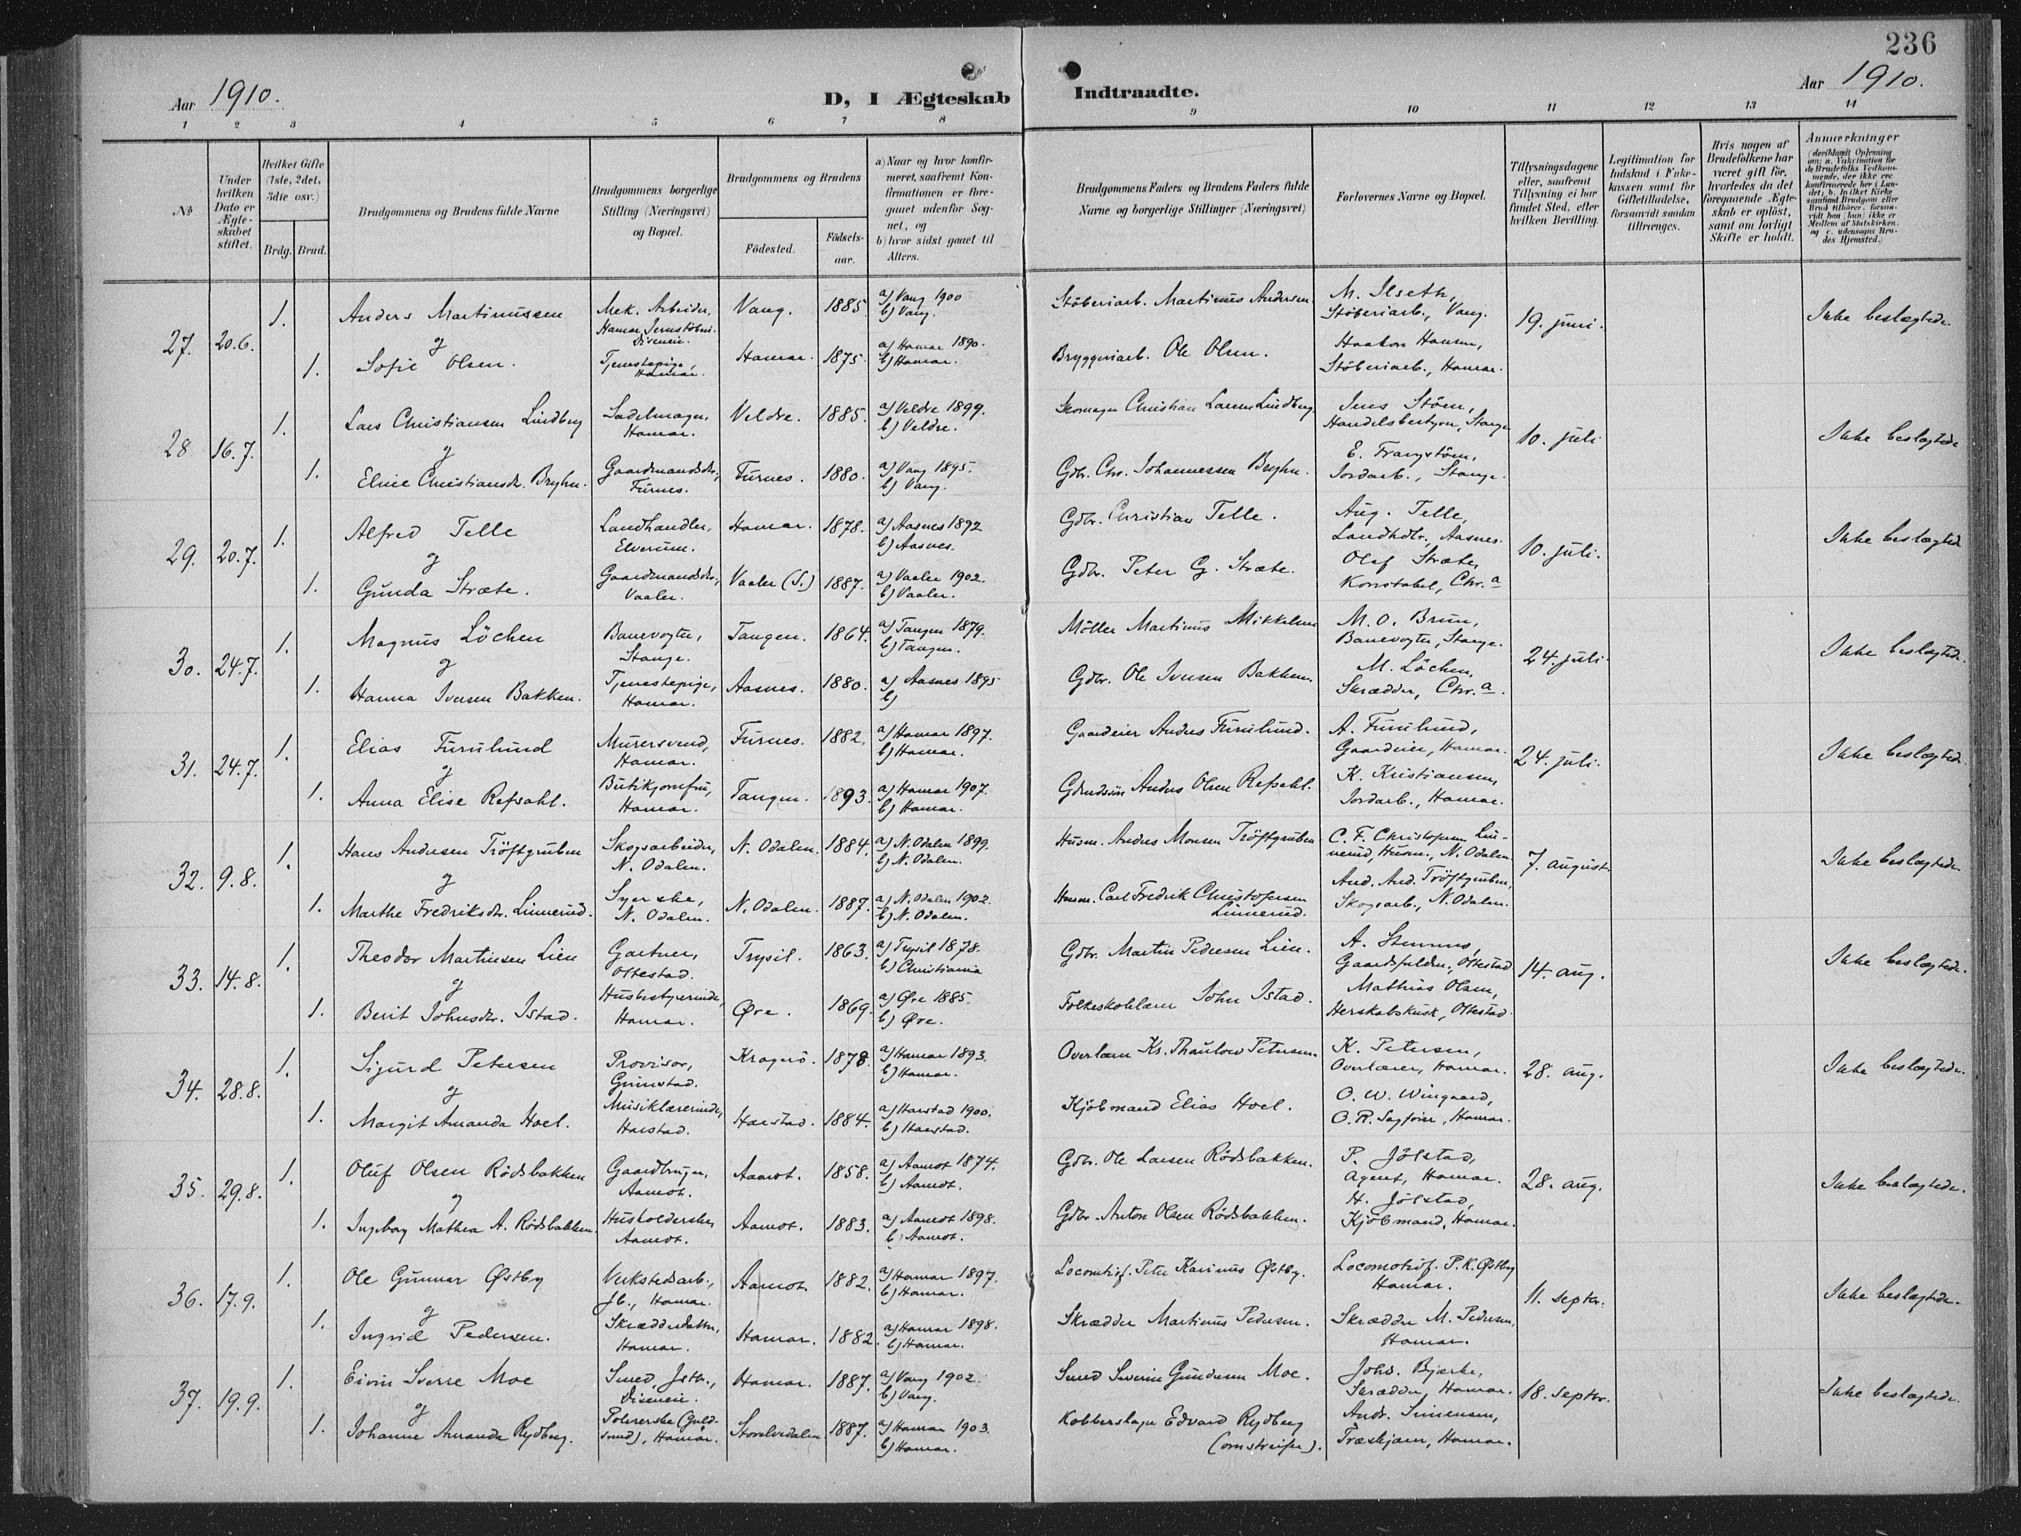 236
Aar 1910.
D, I Ægteskab Indtraadte.
Aar 1910.
1 2 3 4 5 6 7 8 9 10 11 12 13 14
№
Under hvilken Dato er Ægteskabet stiftet.
Hvilket Gifte (1ste, 2det, 3die osv.)
Brdg. Brud.
Brudgommens og Brudens fulde Navne
Brudgommens borgerlige Stilling (Næringsvei) og Bopæl.
Brudgommens og Brudens
Fødested.
Fødselsaar.
a) Naar og hvor konfirmeret, saafremt Konfirmationen er foregaaet udenfor Sognet, og
b) hvor sidst gaaet til Alters.
Brudgommens Faders og Brudens Faders fulde Navne og borgerlige Stillinger (Næringsvei)
Forlovernes Navne og Bopæl.
Tillysningsdagene eller, saafremt Tillysning ei har fundet Sted, efter hvilken Bevilling.
Legitimation for Indskud i Enkekassen samt for Giftetilladelse, forsaavidt saadan tiltrænges.
Hvis nogen af Brudefolkene har været gift før, hvorledes da det foregaaende Ægteskab er opløst, samt om lovligt Skifte er holdt.
Anmerkninger
27. 20.6. 1. Anders Martinussen Mek. Arbeider, Hamar Jernstøberi Disenen. Vang. 1885 a) Vang 1900 b) Vang. Støberiarb. Martinus Andersen M. Ilseth, Støberiarb., Vang. 19. juni. Ikke beslægtede.
og
1. Sofie Olsen. Tjenestepige, Hamar. Hamar. 1875. a) Hamar 1890. b) Hamar. Bryggeriarb. Ole Olsen. Haakon Hansen, Støberiarb., Hamar.
28 16.7. 1. Lars Christiansen Lindberg Sadelmager, Hamar. Veldre. 1885. a) Veldre 1899. b) Veldre. Skomager Christian Larsen Lindberg Jens Støen, Handelsbestyrer, Stange 10. juli Ikke beslægtede
og
1. Eline Christiansdr. Bryhn. Gaardmandsdtr., Furnes. Furnes. 1880. a) Vang 1895. b) Vang. Gdbr. Chr. Johannessen Bryhn. E. Frangstøen, Jordarb., Stange.
29. 20.7. 1. Alfred Telle Landhandler, Elverum. Hamar. 1878. a) Aasnes 1892 b) Aasnes. Gdbr. Christian Telle. Aug. Telle, Landhdlr., Aasnes. 10. juli. Ikke beslægtede
og
1. Gunda Stræte. Gaardmandsdtr., Vaaler. Vaaler (S.) 1887. a) Vaaler 1902. b) Vaaler. Gdbr. Peter G. Stræte. Olaf Stræte, Konstabel, Chr.a
30. 24.7. 1. Magnus Löchen Banevogter, Stange. Tangen. 1864. a) Tangen 1879. b) Tangen. Møller Martinus Mikkelsen M. O. Brun, Banevogter, Stange. 24. juli. Ikke beslægtede.
og
1. Hanna Iversen Bakken. Tjenestepige, Hamar. Aasnes. 1880. a) Aasnes 1895 b) Gdbr. Ole Iversen Bakken. M. Löchen, Skrædder, Chr.a.
31. 24.7. 1. Elias Furulund Murersvend, Hamar. Furnes. 1882. a) Hamar 1897. b) Hamar. Gaardeier Anders Furulund. A. Furulund, Gaardeier, Hamar. 24. juli. Ikke beslægtede.
og
1. Anna Elise Refsahl. Butikjomfru, Hamar. Tangen. 1893. a) Hamar 1907. b) Hamar. Anders Olsen Refsahl. K. Kristiansen, Jordarb., Hamar.
32. 9.8. 1. Hans Andersen Tröftgruben Skogsarbeider, N. Odalen. N. Odalen. 1884. a) N. Odalen 1899. b) N. Odalen. Husm. Anders Monsen Tröftgruben C. F. Christofersen Linnerud, Husm., N. Odalen 7. august. Ikke beslægtede
og
1. Marthe Fredriksdr. Linnerud. Syerske, N. Odalen. N. Odalen. 1887. a) N. Odalen 1902. b) N. Odalen. Husm. Carl Fredrik Christofersen Linnerud. And. And. Tröftgruben, Skogsarb., N. Odalen.
33. 14.8. 1. Theodor Martinsen Lien Gartner, Ottestad. Trysil. 1863. a) Trysil 1878. b) Christiania Gdbr. Martin Pedersen Lien. A. Stennes, Ottestad 14. aug. Ikke beslægtede.
og
1. Berit Johnsdr. Istad. Husbestyrerinde, Hamar. Øre. 1869. a) Øre 1885. b) Øre. Folkeskolelærer John Istad. Mathias Olsen, Herskabskusk, Ottestad.
34. 28.8. 1. Sigurd Petersen Provisor, Grimstad. Kragerö. 1878. a) Hamar 1893. b) Hamar. Overlærer Ks. Thaulow Petersen. K. Petersen, Overlærer, Hamar. 28. aug. Ikke beslægtede.
og
1. Margit Amanda Hoel. Musiklærerinde, Harstad. Harstad. 1884. a) Harstad 1900. b) Harstad. Kjøbmand Elias Hoel. O. W. Wingaard, O. R. Sagfører, Hamar.
35. 29.8. 1. Oluf Olsen Rödsbakken Gaardbruger, Aamot. Aamot. 1858. a) Aamot 1874. b) Aamot. Gdbr. Ole Larsen Rödsbakken. P. Jölstad, Agent, Hamar. 28. aug. Ikke beslægtede.
og
1. Ingeborg Mathea A. Rödsbakken. Husholderske, Aamot. Aamot. 1883. a) Aamot 1898. b) Aamot. Gdbr. Anton Olsen Rödsbakken. H. Jölstad, Kjöbmand, Hamar.
36. 17.9. 1. Ole Gunnar Østby Verkstedsarb., Jb., Hamar. Aamot. 1882. a) Hamar 1897. b) Hamar. Locomotivf. Peter Karinus Østby. Locomotivf. P. K. Østby Hamar. 11. septbr. Ikke beslægtede.
og
1. Ingrid Pedersen. Skrædderdatter, Hamar. Hamar. 1882. a) Hamar 1898. b) Hamar. Skrædder Martinus Pedersen. Skrædder M. Pedersen, Hamar.
37. 19.9. 1. Eivin Sverre Moe Smed, Jstb., Disenen. Hamar. 1887. a) Vang 1902. b) Vang. Smed Severin Gundersen Moe. Johs. Bjerke, Skrædder, Hamar. 18. septbr. Ikke beslægtede.
og
1. Johanne Amanda Rydberg. Polererske (Guldsmed), Hamar. Storelvedalen 1887. a) Hamar 1903. b) Hamar. Kobberslager Edvard Rydberg (omstreifer). Andr. Simensen, Træskjærer, Hamar.